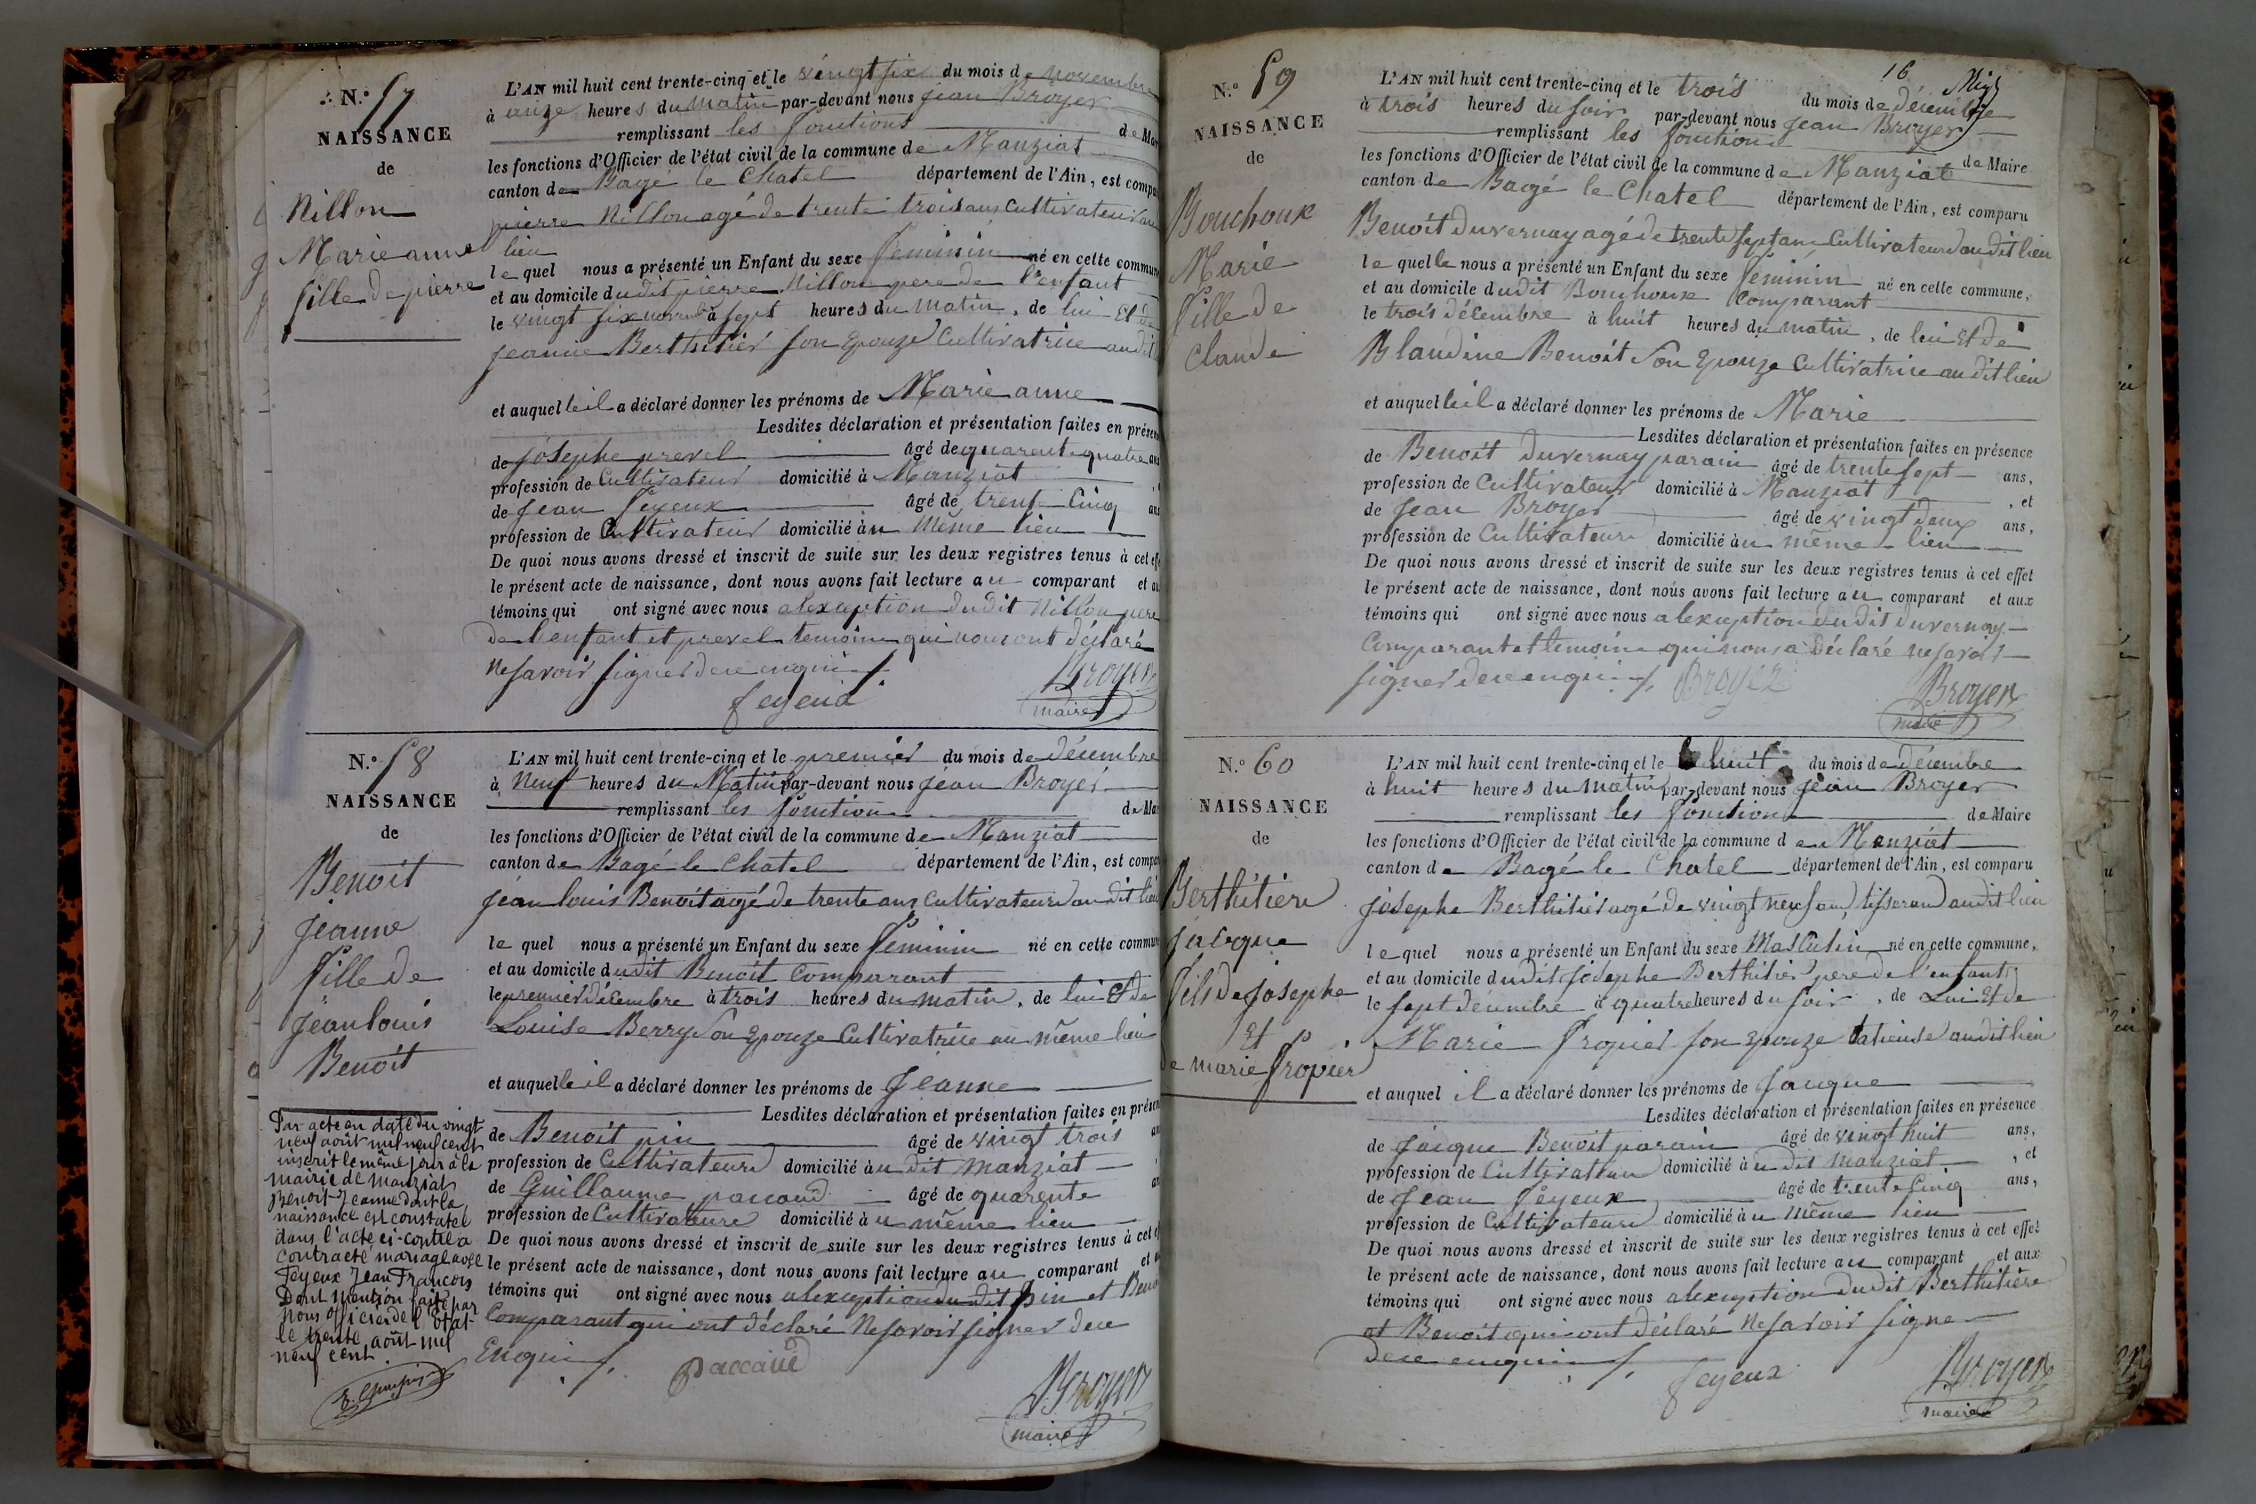 N.o 57
NAISSANCE
de
Nillon
Marie anne
fille de pierre
L'AN mil huit cent trente-cinq et le vingt six du mois de novembre
à onze heures du matin par-devant nous Jean Broyer
remplissant les fonctions de Mai
les fonctions d'Officier de l'état civil de la commune de Manziat
canton de Bagé le Chatel département de l'Ain, est compa
pierre Nillon agé de trente trois ans Cultivateur au
lieu
lequel nous a présenté un Enfant du sexe féminin né en cette commune
et au domicile dudit pierre Nillon pere de l'enfant
le vingt six novemb à sept heures du matin, de lui Et de
jeanne Berthitier son Epouze Cultivatrice au dit
et auquelle il a déclaré donner les prénoms de Marie anne
Lesdites déclaration et présentation faites en présen
de josephe prevel âgé de quarente quatre ans
profession de Cultivateur domicilié à Manziat
de Jean feyeux âgé de trente Cinq ans
profession de Cultivateur domicilié àu même lieu
De quoi nous avons dressé et inscrit de suite sur les deux registres tenus à cet effe
le présent acte de naissance, dont nous avons fait lecture au comparant et au
témoins qui ont signé avec nous alexception dudit Nillon pere
de l'enfant et prevel temoins qui nous ont déclaré
ne savoir signer de ce enquis /.
feyeux
Broyer
maire
N.o 58
NAISSANCE
de
Benoit
jeanne
fille de
jean louis
Benoit
Par acte en date du vingt
neuf août mil neuf cent
inscrit le même jour à la
mairie de Manziat
Benoit Jeanne dont la
naissance est constatée
dans l'acte ci-contre a
contracté mariage avec
Feyeux Jean François
Dont mention faite par
nous officier de l'état
le trente août mil
neuf cent
L'AN mil huit cent trente-cinq et le premier du mois de décembre
à Neuf heures du Matin par-devant nous jean Broyer
remplissant les fonction de Mai
les fonctions d'Officier de l'état civil de la commune de Manziat
canton de Bagé le chatel département de l'Ain, est compar
jean louis Benoit agé de trente ans cultivateur au dit lieu
lequel nous a présenté un Enfant du sexe féminin né en cette commune
et au domicile dudit Benoit comparant
le premier décembre à trois heures du matin, de lui Et de
Louise Berry Son Epouze Cultivatrice au même lieu
et auquelle il a déclaré donner les prénoms de Jeanne
Lesdites déclaration et présentation faites en présen
de Benoit pin âgé de vingt trois an
profession de Cultivateur domicilié àu dit manziat
de Guillaume paccaud âgé de quarente
profession de Cultivateur domicilié àu même lieu
De quoi nous avons dressé et inscrit de suite sur les deux registres tenus à cet ef
le présent acte de naissance, dont nous avons fait lecture au comparant et
témoins qui ont signé avec nous alexception dudit pin et Beno
Comparant qui ont déclaré Ne savoir signer de ce
Enquis /.
Paccaud
Broyer
maire
16
N.o 59
NAISSANCE
de
Bouchoux
Marie
fille de
Claude
L'AN mil huit cent trente-cinq et le trois du mois de décembre
à trois heures du soir par-devant nous Jean Broyer
remplissant les fonction de Maire
les fonctions d'Officier de l'état civil de la commune de Manziat
canton de Bagé le Chatel département de l'Ain, est comparu
Benoit duvernay agé de trente sept ans Cultivateur au dit lieu
lequelle nous a présenté un Enfant du sexe féminin né en cette commune,
et au domicile dudit Bouchoux comparant
le trois décembre à huit heures du matin, de lui Et de
Blandine Benoit Son Epouze Cultivatrice au dit lieu
et auquelle il a déclaré donner les prénoms de Marie
Lesdites déclaration et présentation faites en présence
de Benoit duvernay parain âgé de trente sept ans,
profession de Cultivateur domicilié à Manziat, et
de Jean Broyer âgé de vingt deux ans,
profession de Cultivateur domicilié àu même lieu
De quoi nous avons dressé et inscrit de suite sur les deux registres tenus à cet effet
le présent acte de naissance, dont nous avons fait lecture au comparant et aux
témoins qui ont signé avec nous alexception dudit duvernay
Comparant et temoin qui nous a déclaré ne savoir
signer de ce enquis /. Broyer
Broyer
maire
N.o 60
NAISSANCE
de
Berthitier
jacque
fils de josephe
Et
de marie fropier
L'AN mil huit cent trente-cinq et le huit du mois de décembre
à huit heures du matin par-devant nous jean Broyer
remplissant les fonction de Maire
les fonctions d'Officier de l'état civil de la commune de Manziat
canton de Bagé le Chatel département de l'Ain, est comparu
josephe Berthitier agé de vingt neuf ans, tisserand au dit lieu
lequel nous a présenté un Enfant du sexe Masculin né en cette commune,
et au domicile dudit josephe Berthitier pere de l'enfant
le sept décembre à quatre heures du soir, de Lui Et de
Marie fropier son Epouze au dit lieu
et auquel il a déclaré donner les prénoms de Jacque
Lesdites déclaration et présentation faites en présence
de Jacque Benoit parain âgé de vingt huit ans,
profession de Cultivateur domicilié àu dit manziat, et
de Jean feyeux âgé de trente Cinq ans,
profession de Cultivateur domicilié àu même lieu
De quoi nous avons dressé et inscrit de suite sur les deux registres tenus à cet effet
le présent acte de naissance, dont nous avons fait lecture au comparant et aux
témoins qui ont signé avec nous alexception dudit Berthitier
et Benoit qui ont déclaré Ne savoir signer
de ce enquis /.
feyeux
Broyer
maire